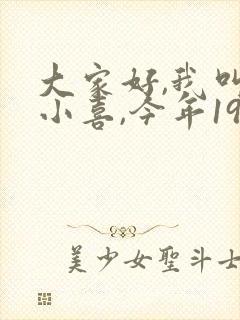 大家好,我叫
小喜,今年19
美少女聖斗士